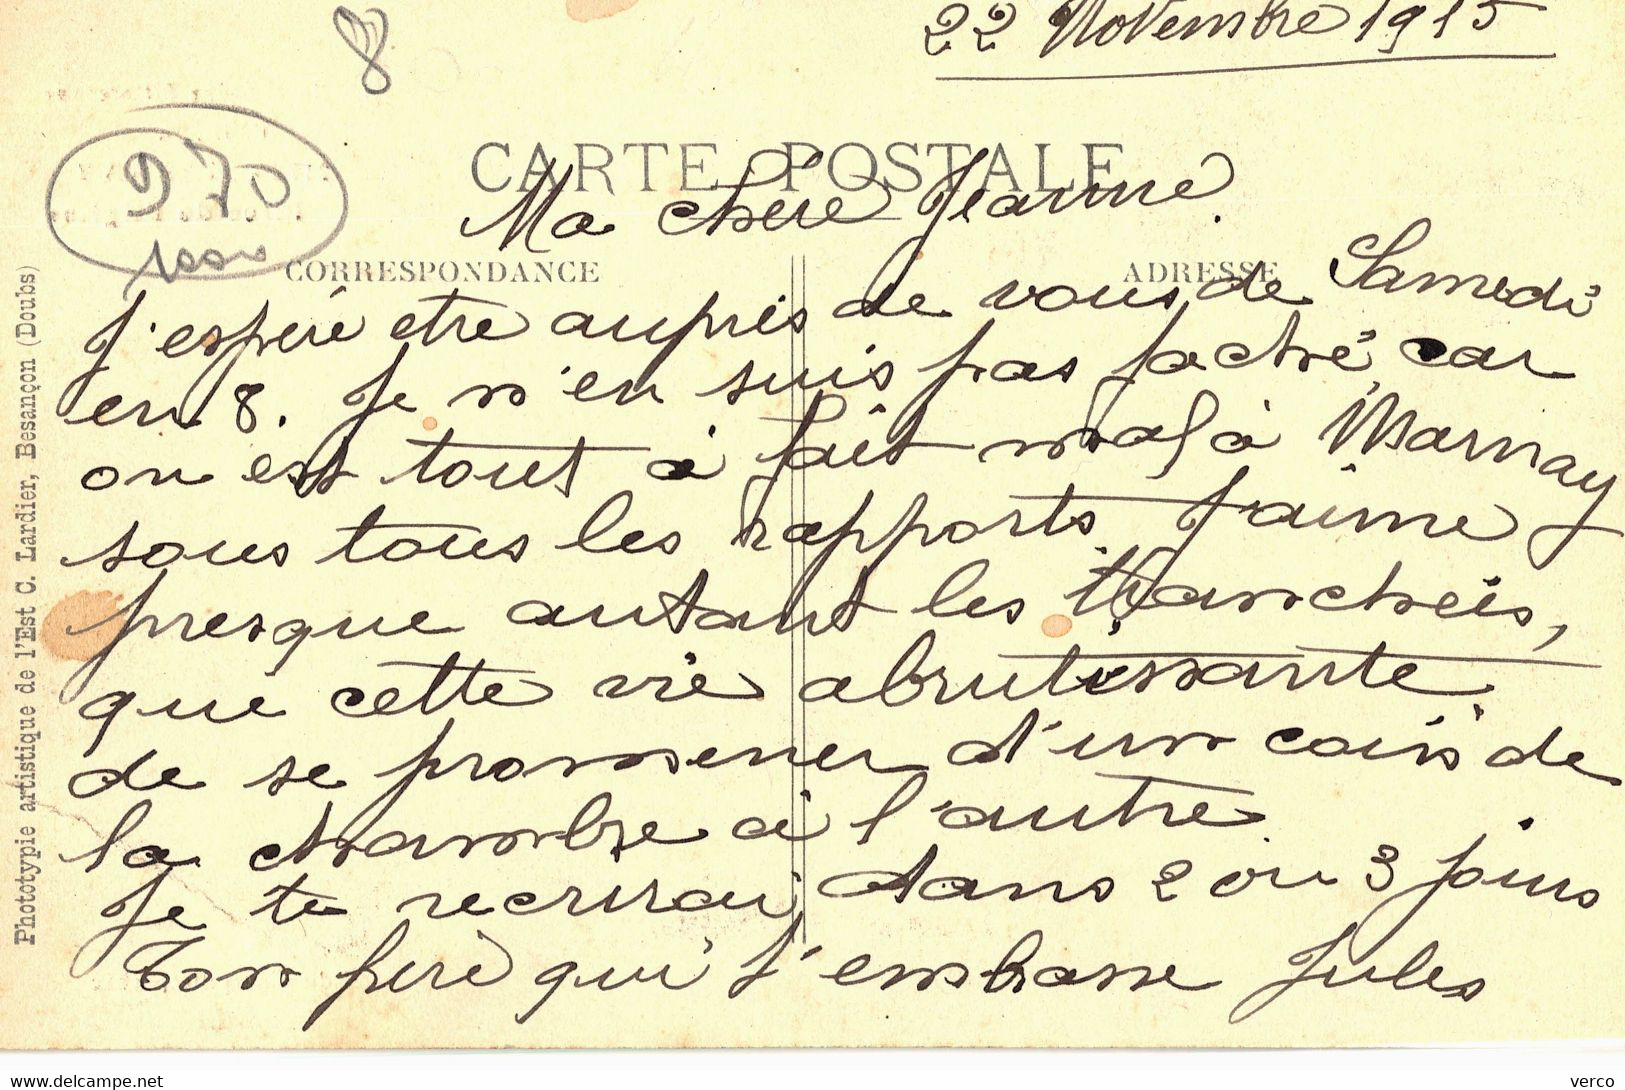 22 Novembre 1915
8
970
1000
CARTE POSTALE
Ma chère Jeanne.
CORRESPONDANCE
ADRESSE
J'espère etre auprès de vous, de Samedi
en 8. Je n'en suis pas faché, car
on est tout à fait mal à Marnay
sous tous les rapports. J'aime
presque autant les tranchées,
que cette vie abrutissante
de se promener d'un coin de
la chambre à l'autre
Je te recrirai dans 2 ou 3 jours
Ton père qui t'embrasse Jules
Phototypie artistique de l'Est C. Lardier, Besançon (Doubs)
https://www.delcampe.net
verco